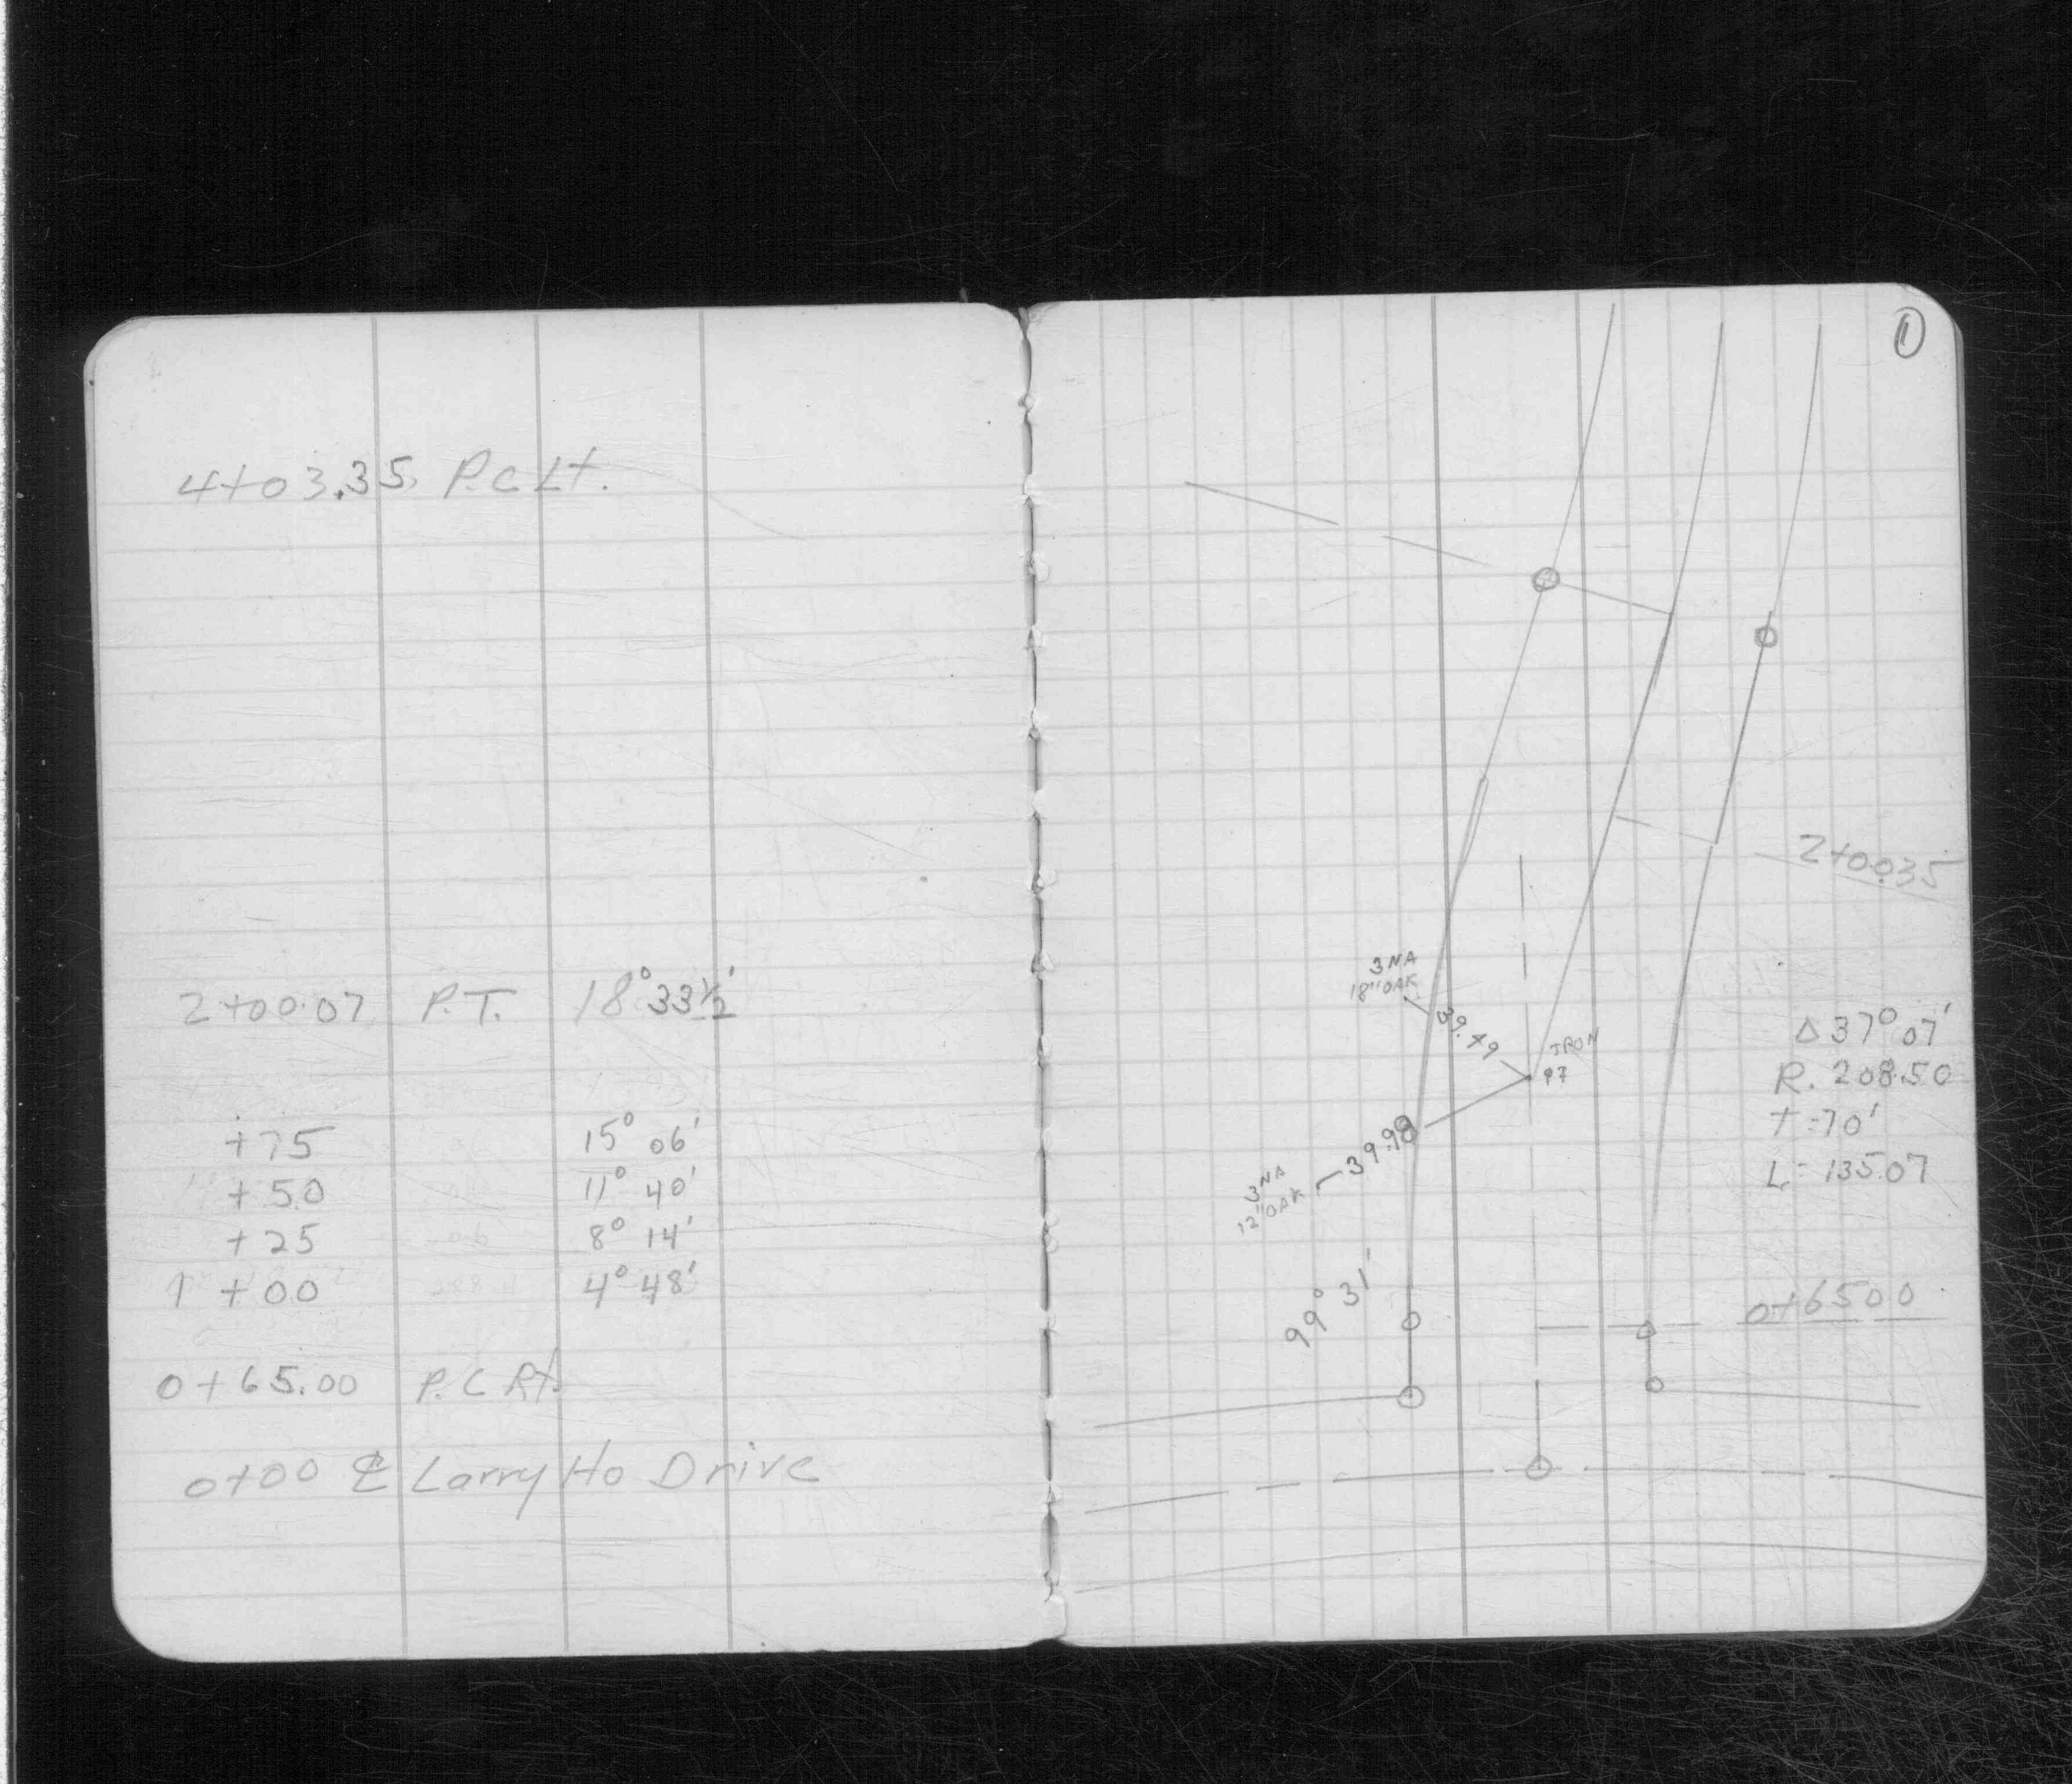 4+03.35 P.C Lt.
2+00.07 P.T. 18° 33½'
+75 15° 06'
+50 11° 40'
+25 8° 14'
1+00 4° 48'
0+65.00 P.C Rt.
0+00 ℄ Larry Ho Drive
1
2+00.35
3 NA
18" OAK
39.49
IRON
97
Δ 37° 07'
R. 208.50
T = 70'
L = 135.07
39.98
3 NA
12" OAK
99° 31'
0+65 00